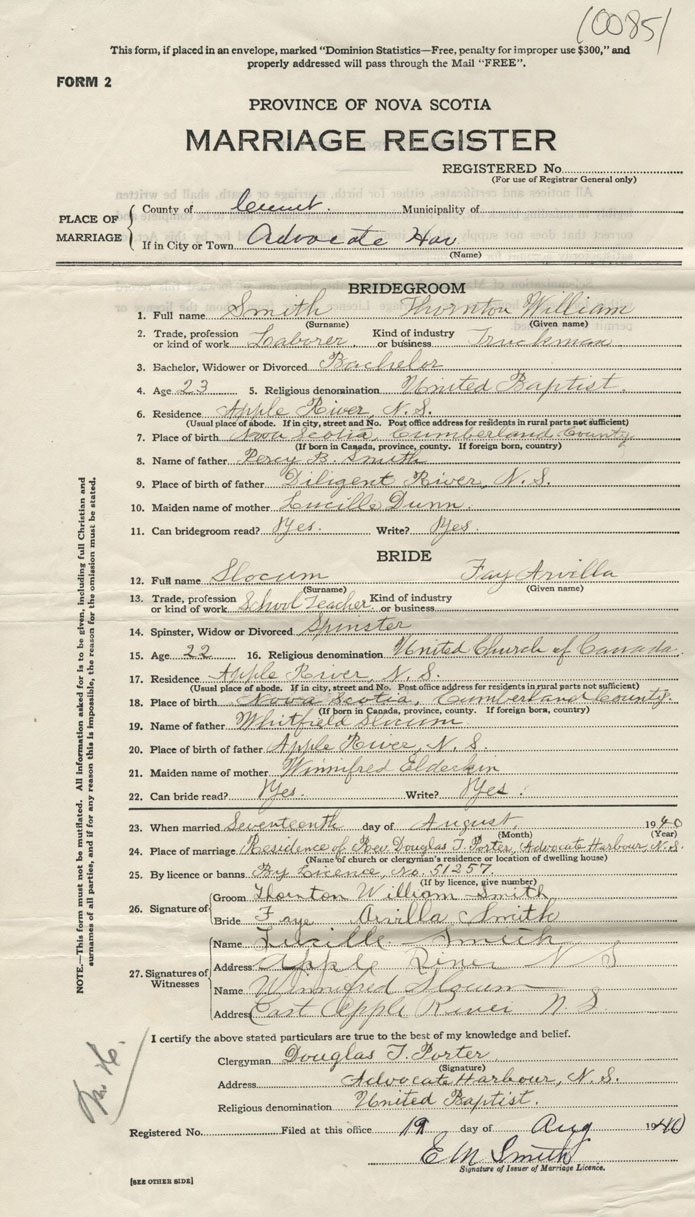 10085
This form, if placed in an envelope, marked "Dominion Statistics—Free, penalty for improper use $300," and
properly addressed will pass through the Mail "FREE".
FORM 2
PROVINCE OF NOVA SCOTIA
MARRIAGE REGISTER
REGISTERED No.
(For use of Registrar General only)
PLACE OF MARRIAGE
County of Cumb. Municipality of
If in City or Town Advocate Har
(Name)
BRIDEGROOM
1. Full name Smith Thornton William
(Surname) (Given name)
2. Trade, profession or kind of work Laborer. Kind of industry or business Truckman
3. Bachelor, Widower or Divorced Bachelor
4. Age 23 5. Religious denomination United Baptist.
6. Residence Apple River, N.S.
(Usual place of abode. If in city, street and No. Post office address for residents in rural parts not sufficient)
7. Place of birth Nova Scotia, Cumberland County
(If born in Canada, province, county. If foreign born, country)
8. Name of father Percy B. Smith
9. Place of birth of father Diligent River, N.S.
10. Maiden name of mother Lucille Dunn.
11. Can bridegroom read? Yes. Write? Yes.
BRIDE
12. Full name Slocum Fay Arvilla
(Surname) (Given name)
13. Trade, profession or kind of work School Teacher Kind of industry or business
14. Spinster, Widow or Divorced Spinster
15. Age 22 16. Religious denomination United Church of Canada.
17. Residence Apple River, N.S.
(Usual place of abode. If in city, street and No. Post office address for residents in rural parts not sufficient)
18. Place of birth Nova Scotia, Cumberland County.
(If born in Canada, province, county. If foreign born, country)
19. Name of father Whitfield Slocum
20. Place of birth of father Apple River, N.S.
21. Maiden name of mother Winnifred Elderkin
22. Can bride read? Yes. Write? Yes.
23. When married Seventeenth day of August 1940
(Month) (Year)
24. Place of marriage Residence of Rev. Douglas T. Porter, Advocate Harbour, N.S.
(Name of church or clergyman's residence or location of dwelling house)
25. By licence or banns By Licence, No. 51257.
(If by licence, give number)
26. Signature of
Groom Thornton William Smith
Bride Faye Arvilla Smith
27. Signatures of Witnesses
Name Lucille Smith
Address Apple River N S
Name Winnifred Slocum
Address East Apple River N S
I certify the above stated particulars are true to the best of my knowledge and belief.
Clergyman Douglas T. Porter
(Signature)
Address Advocate Harbour, N.S.
Religious denomination United Baptist.
Registered No. Filed at this office 19 day of Aug 1940
E M Smith
Signature of Issuer of Marriage Licence.
[SEE OTHER SIDE]
NOTE.—This form must not be mutilated. All information asked for is to be given, including full Christian and
surnames of all parties, and if for any reason this is impossible, the reason for the omission must be stated.